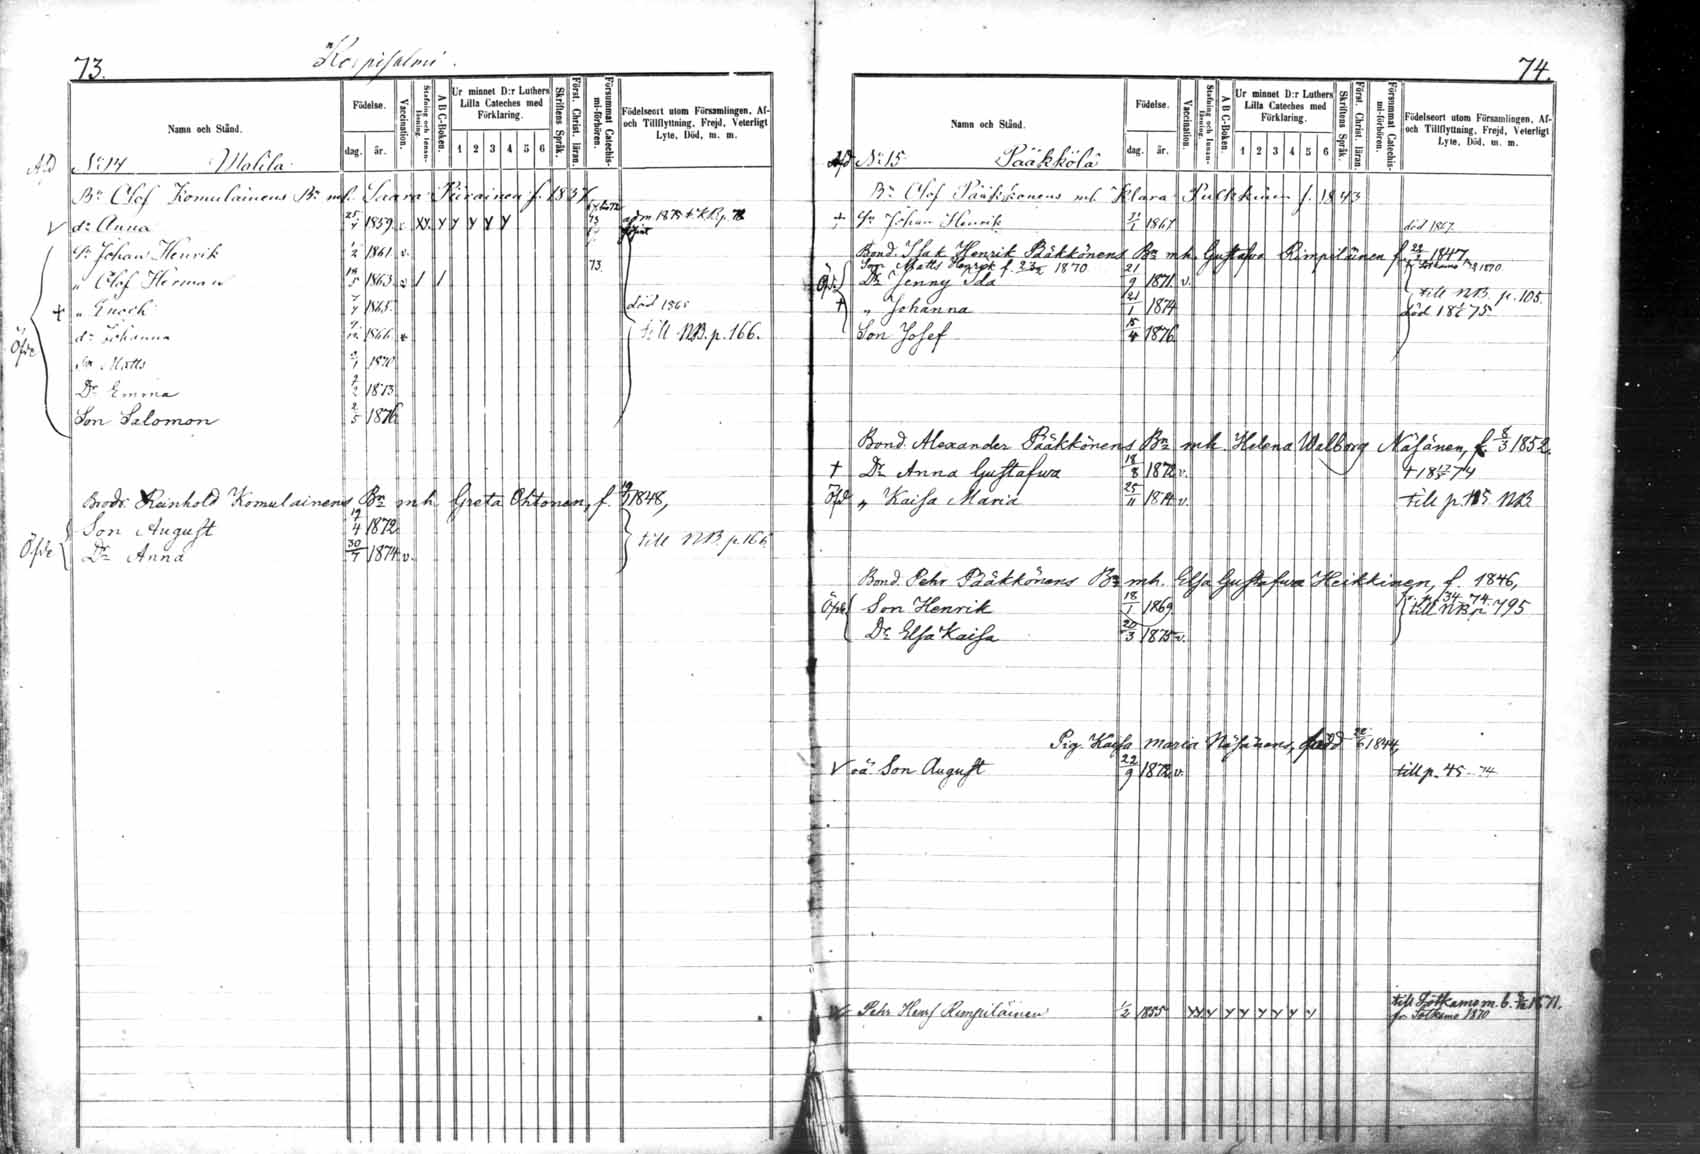 73.
Korpisalmi.
Namn och Stånd.
Födelse.
dag. år.
Vaccination.
Stafning och Innan-läsning.
A B C-Boken.
Ur minnet D:r Luthers Lilla Cateches med Förklaring.
1 2 3 4 5 6
Skriftens Språk.
Först. Christ. läran.
Försummat Catechis-mi-förhören.
Födelseort utom Församlingen, Af- och Tillflyttning, Frejd, Veterligt Lyte, Död, m. m.
No 14
Br Olof Komulainens Br mh. Saara Piirainen f. 1837
dr Anna 25/7 1859
Sn Johan Henrik 1/2 1861 v.
" Olof Herman 18/5 1863 v / / 73.
+ " Enoch 7/7 1865 död 1868
dr Johanna 1866 till NB. p. 166.
Sn Matts 1870
Dr Emma 1873
Son Salomon 2/5 1876
Öfde
Brodr. Reinhold Komulainens Br mh. Greta Ohtonen, f. 1848,
Son August 19/4 1872
Öfde
Dr Anna 30/7 1874 v. till NB. p. 166
74.
Namn och Stånd.
Födelse.
dag. år.
Vaccination.
Stafning och Innan-läsning.
A B C-Boken.
Ur minnet D:r Luthers Lilla Cateches med Förklaring.
1 2 3 4 5 6
Skriftens Språk.
Först. Christ. läran.
Försummat Catechis-mi-förhören.
Födelseort utom Församlingen, Af- och Tillflyttning, Frejd, Veterligt Lyte, Död, m. m.
No 15 Pääkkölä
Br Olof Pääkkönens mh. Klara Pulkkinen f. 1843
+ Sn Johan Henrik 1867 död 1867.
Bond. Isak Henrik Pääkkönens Br mh. Gustafva Rimpiläinen f. 1847.
Son Matts Henrik f. 1870 fr Sotkamo 1870
Dr Jenny Ida 21/9 1871 v. till NB. p. 105.
+ " Johanna 21/1 1874 död 75
Son Josef 15/4 1876
Bond. Alexander Pääkkönens Br mh. Helena Walborg Näsänen, f. 8/3 1852.
+ Dr Anna Gustafva 18/8 1872 v. + 74
Öfd " Kaisa Maria 25/11 1874 v. till p. 105 NB
Bond. Pehr Pääkkönens Br mh. Elsa Gustafva Heikkinen, f. 1846,
Öfde Son Henrik 18/1 1869 till NB p. 795
Dr Elsa Kaisa 20/3 1875 v.
Pig. Kaisa Maria Näsänens, född 1844,
V oä. Son August 22/9 1872 v. till p. 45 74
Pehr Henr Rimpiläinen 1/2 1855 till Sotkamo m. b. 1871.
fr. Sotkamo 1870